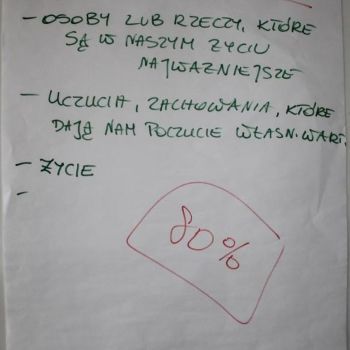 - OSOBY LUB RZECZY, KTÓRE
SĄ W NASZYM ŻYCIU
NAJWAŻNIEJSZE
- UCZUCIA, ZACHOWANIA, KTÓRE
DAJĄ NAM POCZUCIE WŁASN. WART.
- ŻYCIE
-
80%